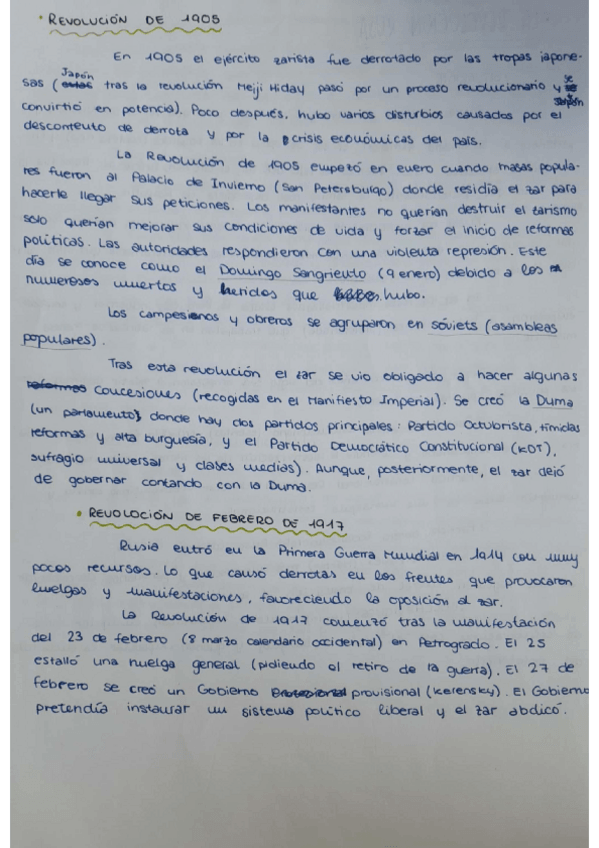 • REVOLUCIÓN DE 1905
En 1905 el ejército zarista fue derrotado por las tropas japone-
Japón
sas ( tras la revolución Meiji Hiday pasó por un proceso revolucionario y se
convirtió en potencia). Poco después, hubo varios disturbios causados por el
descontento de derrota y por la crisis económicas del país.
La Revolución de 1905 empezó en enero cuando masas popula-
res fueron al Palacio de Invierno (San Petersburgo) donde residía el zar para
hacerle llegar sus peticiones. Los manifestantes no querían destruir el zarismo
solo querían mejorar sus condiciones de vida y forzar el inicio de reformas
políticas. Las autoridades respondieron con una violenta represión. Este
día se conoce como el Domingo Sangriento (9 enero) debido a los
numerosos muertos y heridos que hubo.
Los campesinos y obreros se agruparon en sóviets (asambleas
populares).
Tras esta revolución el zar se vio obligado a hacer algunas
reformas concesiones (recogidas en el Manifiesto Imperial). Se creó la Duma
(un parlamento) donde hay dos partidos principales: Partido Octubrista, tímidas
reformas y alta burguesía, y el Partido Democrático Constitucional (KDT),
sufragio universal y clases medias). Aunque, posteriormente, el zar dejó
de gobernar contando con la Duma.
• REVOLOCIÓN DE FEBRERO DE 1917
Rusia entró en la Primera Guerra Mundial en 1914 con muy
pocos recursos. Lo que causó derrotas en los frentes que provocaron
huelgas y manifestaciones, favoreciendo la oposición al zar.
La Revolución de 1917 comenzó tras la manifestación
del 23 de febrero (8 marzo calendario occidental) en Petrogrado. El 25
estalló una huelga general (pidiendo el retiro de la guerra). El 27 de
febrero se creó un Gobierno provisional (Kerensky). El Gobierno
pretendía instaurar un sistema político liberal y el zar abdicó.